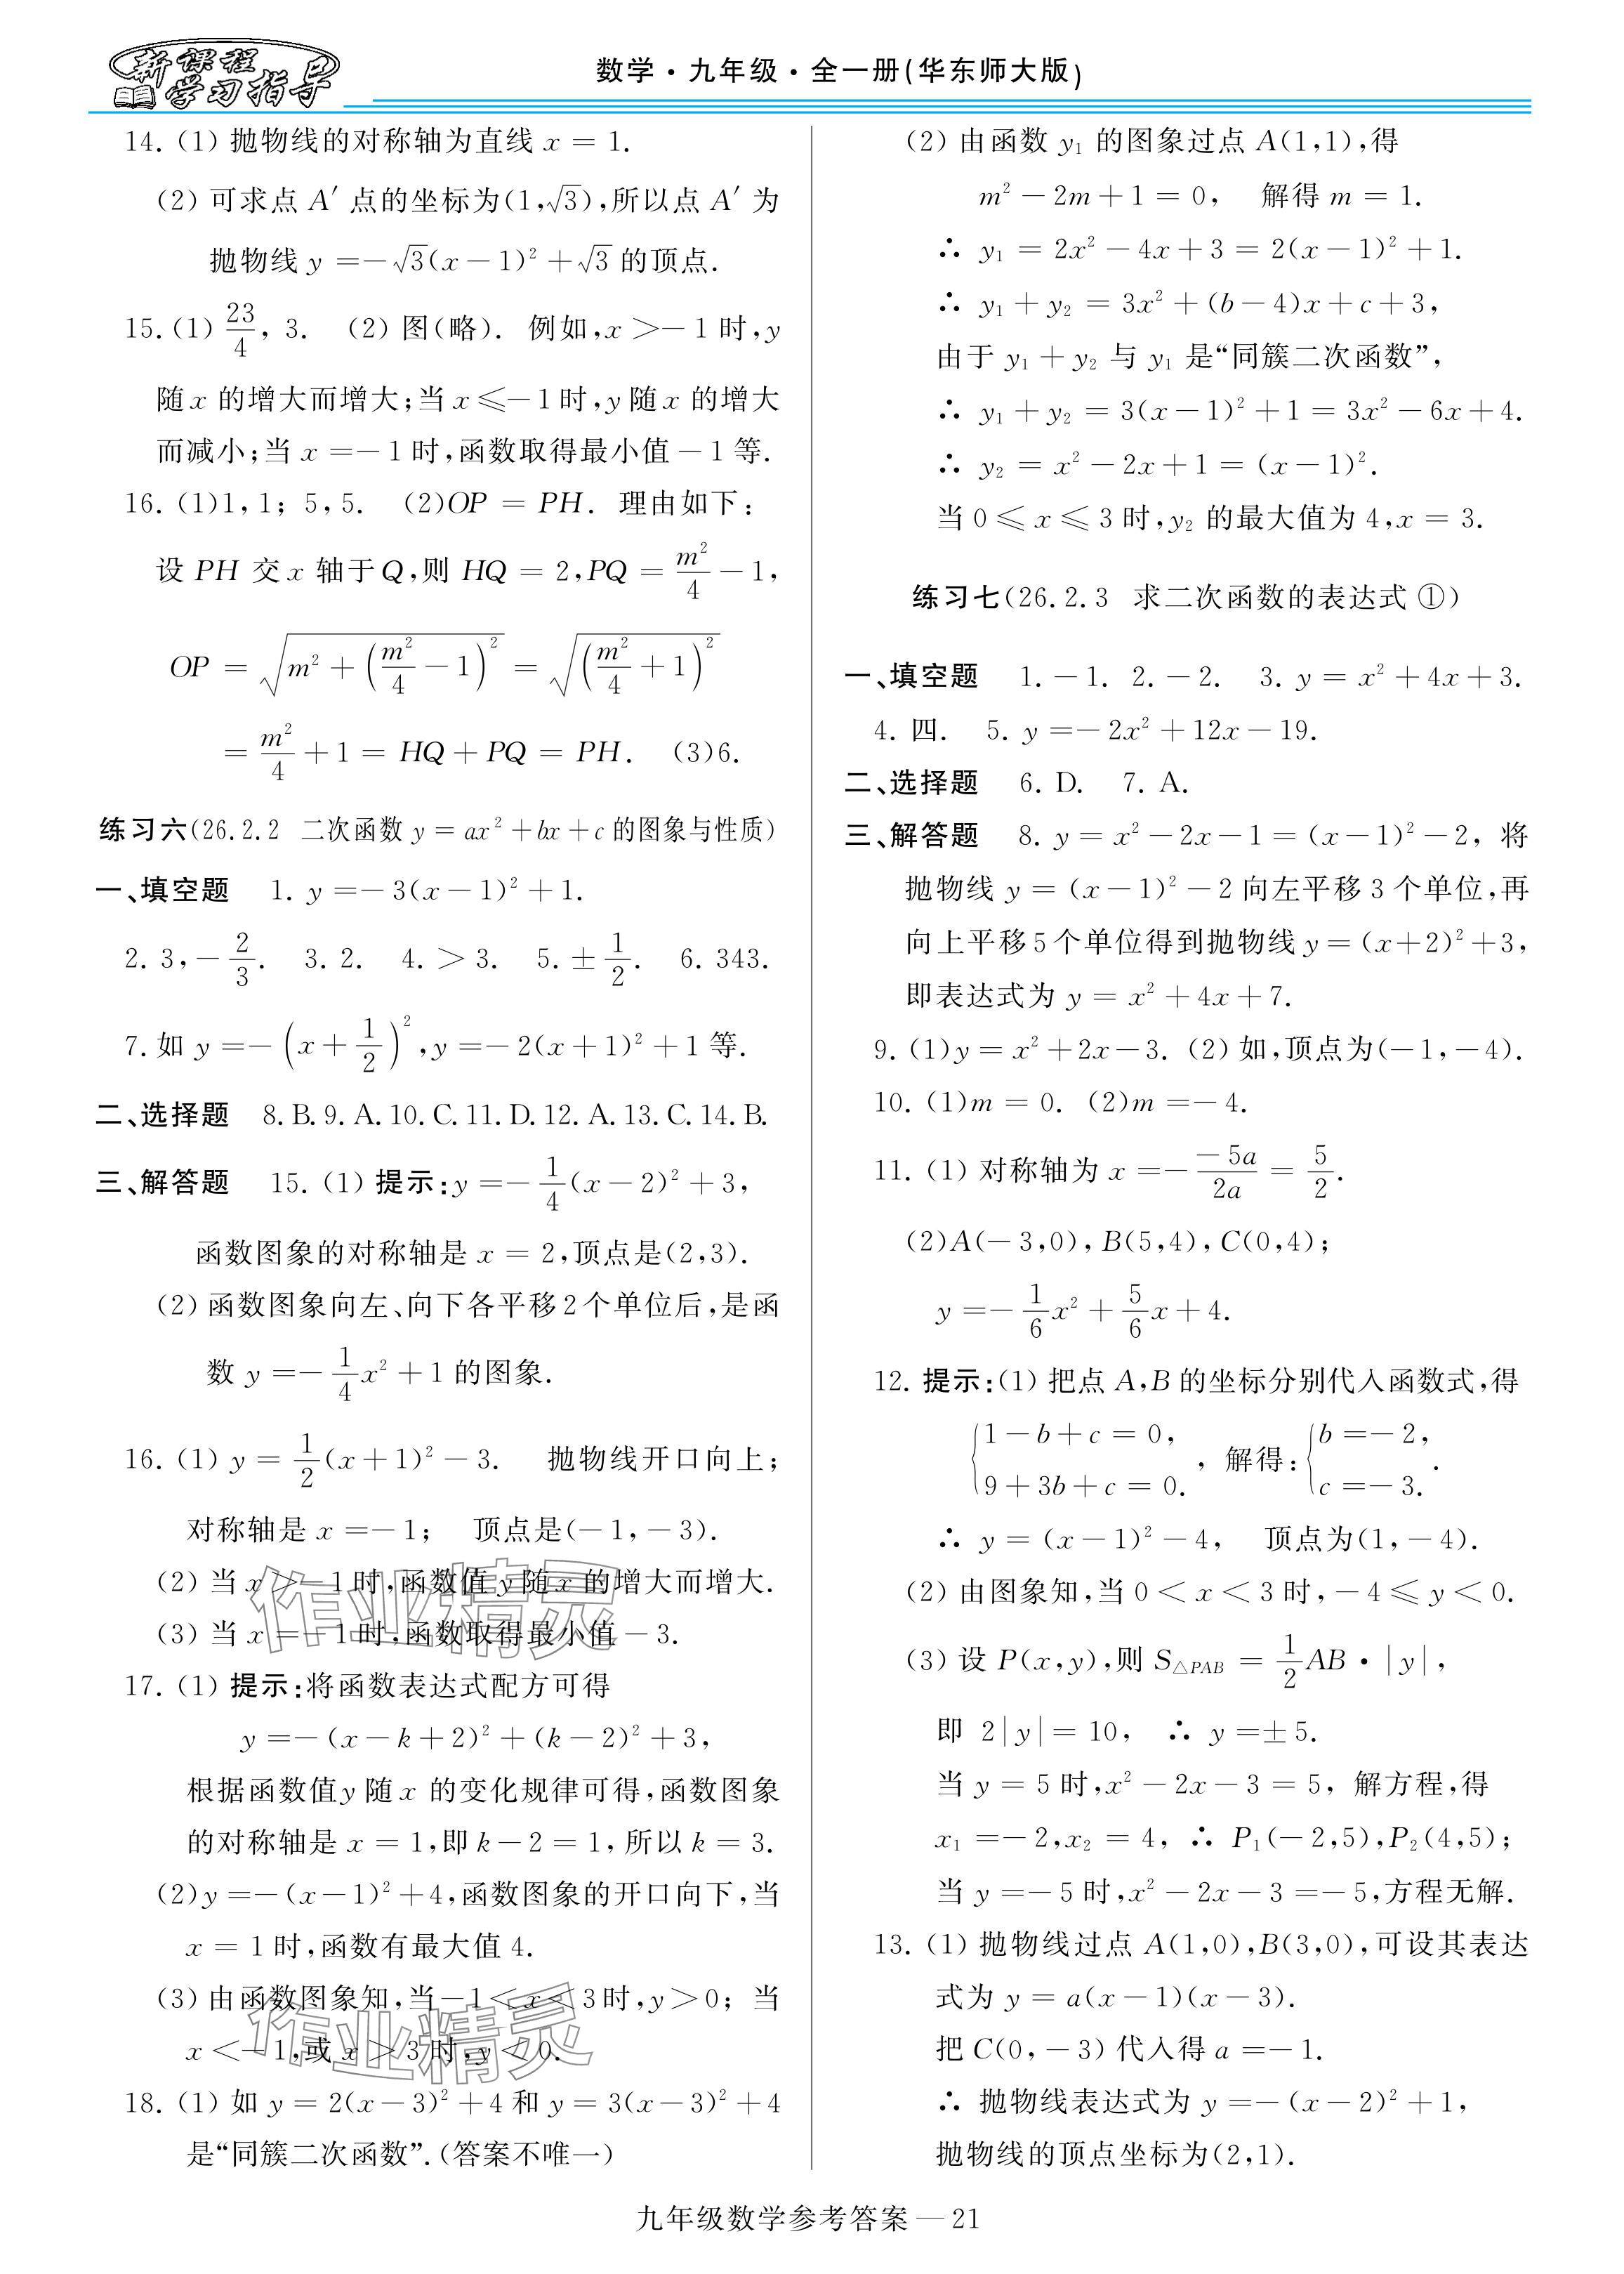 新课程
学习指导
数学·九年级·全一册(华东师大版)
14. (1) 抛物线的对称轴为直线 x = 1.
(2) 可求点 A′ 点的坐标为(1,√3),所以点 A′ 为
抛物线 y =-√3(x-1)²+√3 的顶点.
15. (1) 23/4, 3. (2) 图(略). 例如,x >-1 时,y
随 x 的增大而增大;当 x ≤-1 时,y 随 x 的增大
而减小;当 x =-1 时,函数取得最小值-1 等.
16. (1)1,1; 5,5. (2)OP = PH. 理由如下:
设 PH 交 x 轴于 Q,则 HQ = 2,PQ = m²/4 - 1,
OP = √(m² + (m²/4 - 1)²) = √((m²/4 + 1)²)
= m²/4 + 1 = HQ + PQ = PH. (3)6.
练习六(26.2.2 二次函数 y = ax² + bx + c 的图象与性质)
一、填空题 1. y =-3(x-1)²+1.
2. 3,-2/3. 3. 2. 4. > 3. 5. ±1/2. 6. 343.
7. 如 y =-(x+1/2)²,y =-2(x+1)²+1 等.
二、选择题 8. B. 9. A. 10. C. 11. D. 12. A. 13. C. 14. B.
三、解答题 15. (1) 提示:y =-1/4(x-2)²+3,
函数图象的对称轴是 x = 2,顶点是(2,3).
(2) 函数图象向左、向下各平移2个单位后,是函
数 y =-1/4x²+1 的图象.
16. (1) y = 1/2(x+1)²-3. 抛物线开口向上;
对称轴是 x =-1; 顶点是(-1,-3).
(2) 当 x >-1 时,函数值 y 随 x 的增大而增大.
(3) 当 x =-1 时,函数取得最小值-3.
17. (1) 提示:将函数表达式配方可得
y =-(x-k+2)²+(k-2)²+3,
根据函数值y 随 x 的变化规律可得,函数图象
的对称轴是 x = 1,即 k-2 = 1, 所以 k = 3.
(2)y =-(x-1)²+4,函数图象的开口向下,当
x = 1 时,函数有最大值 4.
(3) 由函数图象知,当-1<x<3时,y>0; 当
x <-1,或 x > 3 时,y < 0.
18. (1) 如 y = 2(x-3)²+4 和 y = 3(x-3)²+4
是“同簇二次函数”.(答案不唯一)
(2) 由函数 y₁ 的图象过点 A(1,1),得
m²-2m+1 = 0, 解得 m = 1.
∴ y₁ = 2x²-4x+3 = 2(x-1)²+1.
∴ y₁+y₂ = 3x²+(b-4)x+c+3,
由于 y₁+y₂ 与 y₁ 是“同簇二次函数”,
∴ y₁+y₂ = 3(x-1)²+1 = 3x²-6x+4.
∴ y₂ = x²-2x+1 = (x-1)².
当 0 ≤ x ≤ 3 时,y₂ 的最大值为 4,x = 3.
练习七(26.2.3 求二次函数的表达式 ①)
一、填空题 1. -1. 2. -2. 3. y = x²+4x+3.
4. 四. 5. y =-2x²+12x-19.
二、选择题 6. D. 7. A.
三、解答题 8. y = x²-2x-1 = (x-1)²-2, 将
抛物线 y = (x-1)²-2 向左平移 3 个单位,再
向上平移5个单位得到抛物线 y = (x+2)²+3,
即表达式为 y = x²+4x+7.
9. (1)y = x²+2x-3. (2) 如,顶点为(-1,-4).
10. (1)m = 0. (2)m =-4.
11. (1) 对称轴为 x =- -5a/2a = 5/2.
(2)A(-3,0), B(5,4), C(0,4);
y =-1/6x²+5/6x+4.
12. 提示:(1) 把点 A,B 的坐标分别代入函数式,得
{1-b+c = 0, 9+3b+c = 0. , 解得:{b =-2, c =-3. .
∴ y = (x-1)²-4, 顶点为(1,-4).
(2) 由图象知,当 0 < x < 3 时,-4 ≤ y < 0.
(3) 设 P(x,y),则 S△PAB = 1/2AB·|y|,
即 2|y| = 10, ∴ y =±5.
当 y = 5 时,x²-2x-3 = 5, 解方程,得
x₁ =-2,x₂ = 4, ∴ P₁(-2,5),P₂(4,5);
当 y =-5 时,x²-2x-3 =-5,方程无解.
13. (1) 抛物线过点 A(1,0),B(3,0),可设其表达
式为 y = a(x-1)(x-3).
把 C(0,-3) 代入得 a =-1.
∴ 抛物线表达式为 y =-(x-2)²+1,
抛物线的顶点坐标为(2,1).
作业精灵
作业精灵
九年级数学参考答案 — 21